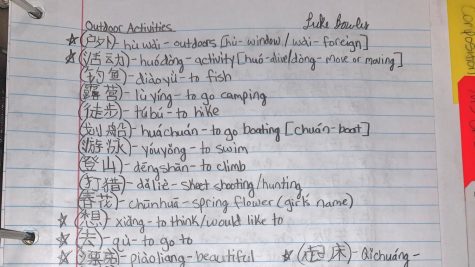 Outdoor Activities Luke Bowles
☆ (户外) hù wài - outdoors [hù- window / wài - foreign]
☆ (活动) huódòng - activity [huó- alive/dòng - move or moving]
(钓鱼) diàoyú - to fish
(露营) lù yíng - to go camping
(徒步) túbú - to hike
(划船) huáchuán - to go boating [chuán - boat]
(游泳) yóuyǒng - to swim
(登山) - dēngshān - to climb
(打猎) - dǎ liè - skeet shooting/hunting
春花) - chūnhuā - spring flower (girl's name)
☆ (想) xiǎng - to think/would like to
☆ (去) - qù - to go to
☆ (漂亮) - piàoliang - beautiful ☆ (起床) - Qǐchuáng -